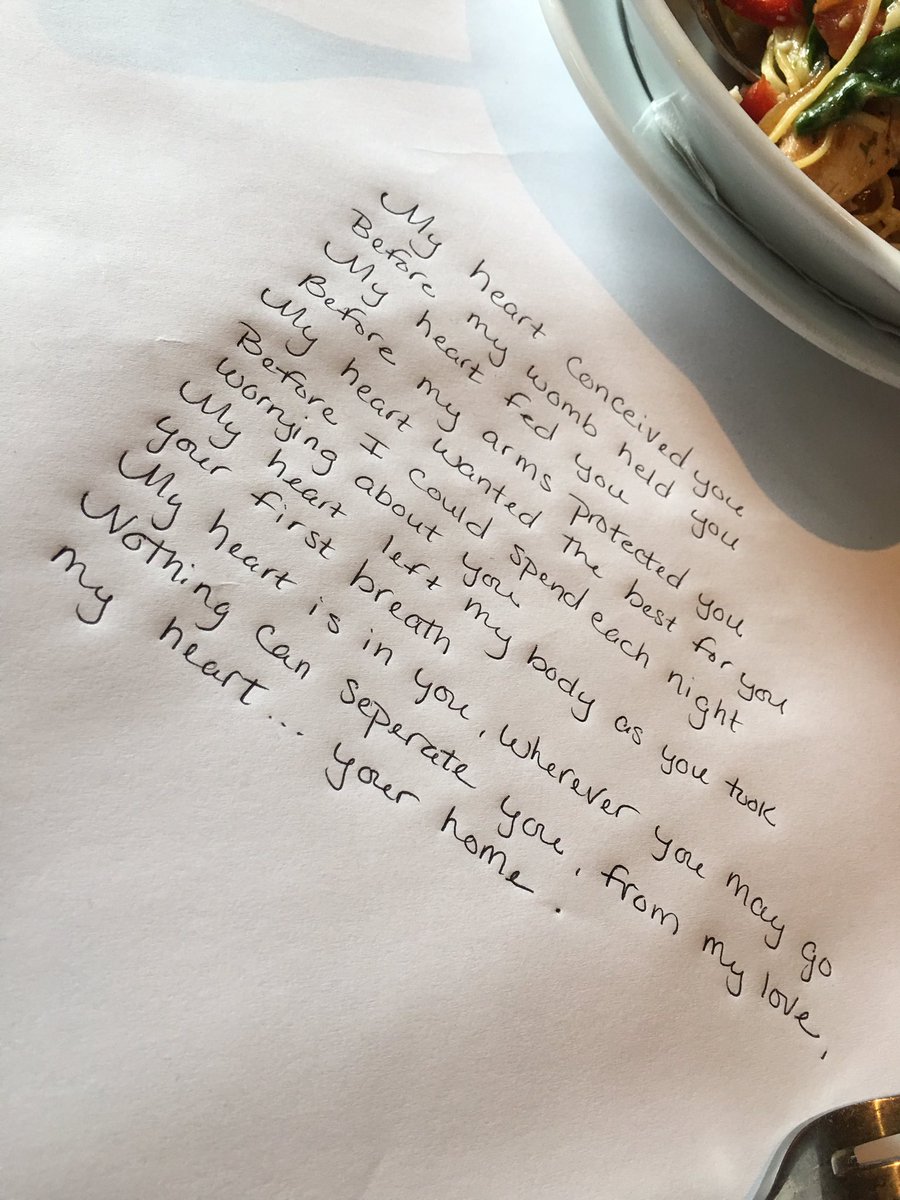 My heart conceived you
Before my womb held you
My heart fed you
Before my arms protected you
My heart wanted the best for you
Before I could spend each night
worrying about you
My heart left my body as you took
your first breath
My heart is in you, wherever you may go
Nothing can seperate you, from my love,
my heart... your home.